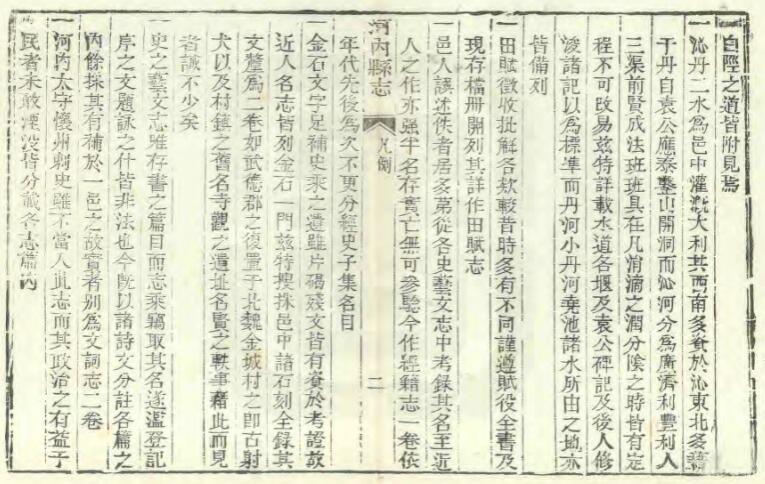 白陘之道皆附見焉
一沁丹二水爲邑中灌漑大利其西南多資於沁東北多藉
于丹自袁公應泰鑿山開洞而沁河分爲廣濟利豐利人
三渠前賢成法班班具在凡涓滴之潤分陰之時皆有定
程不可改易茲特詳載水道各堰及袁公碑記及後人修
浚諸記以爲標準而丹河小丹河堯池諸水所由之地亦
皆備列
一田賦徵收批解各欵較昔時多有不同謹遵賦役全書及
現存檔冊開列其詳作田賦志
一邑人談述佚者居多第從各史藝文志中考録其名至近
人之作亦强半名存實亡無可參驗今作經籍志一卷依
河內縣志
凡例
二
年代先後爲次不更分經史子集名目
一金石文字足補史乘之遺雖片碣殘文皆有資於考證故
近人名志皆列金石一門茲特搜採邑中諸石刻全録其
文釐爲二卷如武德郡之復置于北魏金城村之卽古射
犬以及村鎮之舊名寺觀之遺址名賢之軼事藉此而見
者誠不少矣
一史之藝文志雅存書之篇目而志乘竊取其名遂濫登記
序之文題詠之什皆非法也今旣以諸詩文分註各篇之
內餘採其有補於一邑之故實者别爲文詞志二卷
一河內太守懷州刺史雖不當入此志而其政治之有益于
民者未敢湮没皆分載各志篇內